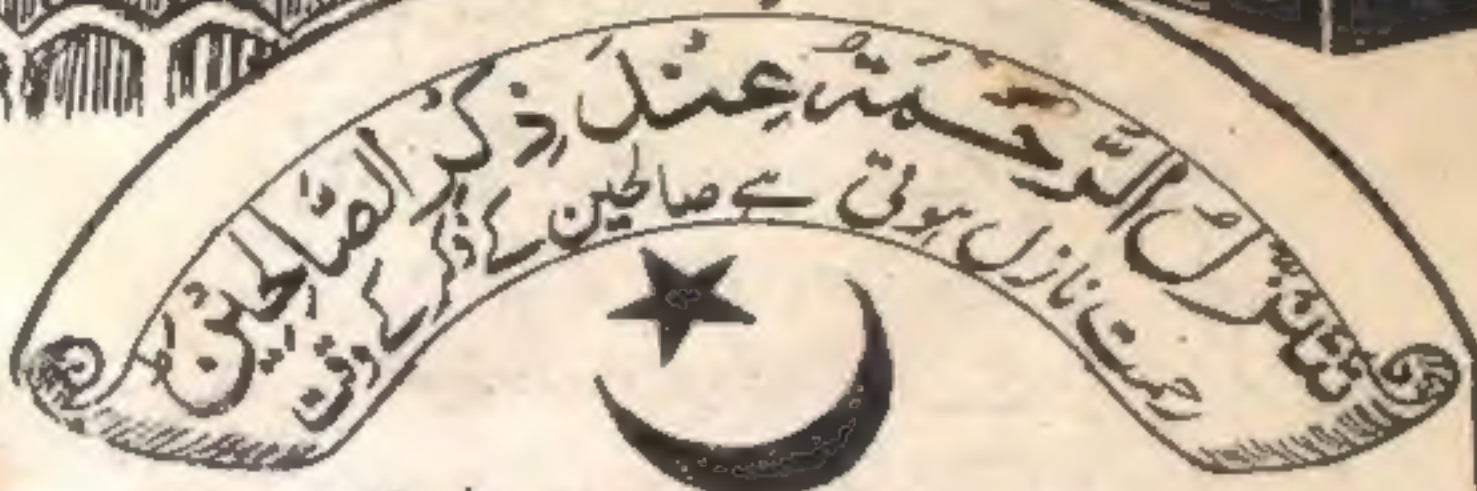 تتنزل الرَّحمَةُ عِندَ ذِكرِ الصَّالحِينَ ط
رحمت نازل ہوتی ہے صالحین کے ذکر کے وقت